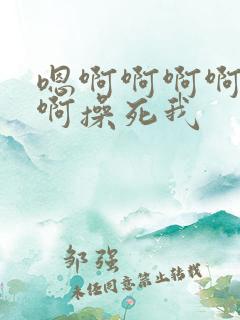 嗯啊啊啊啊
啊操死我
邹强
未经同意禁止转载